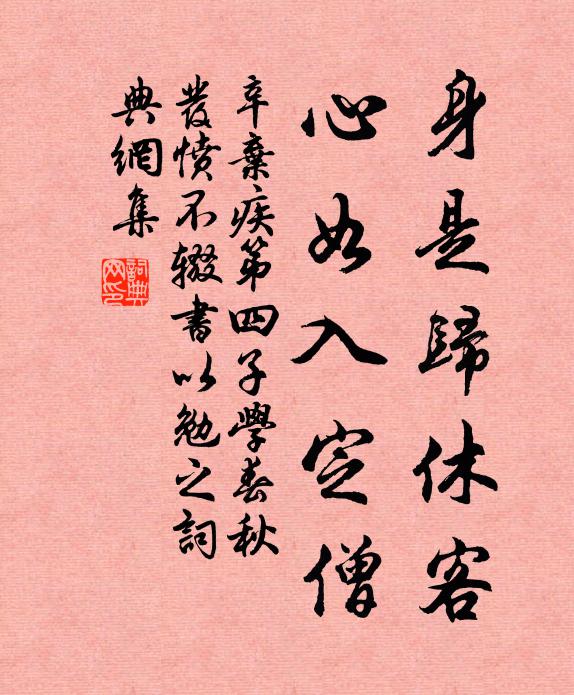 身是歸休客
心如入定僧
辛棄疾第四子學春秋
發憤不輟書以勉之詞
典網集
詞典網印